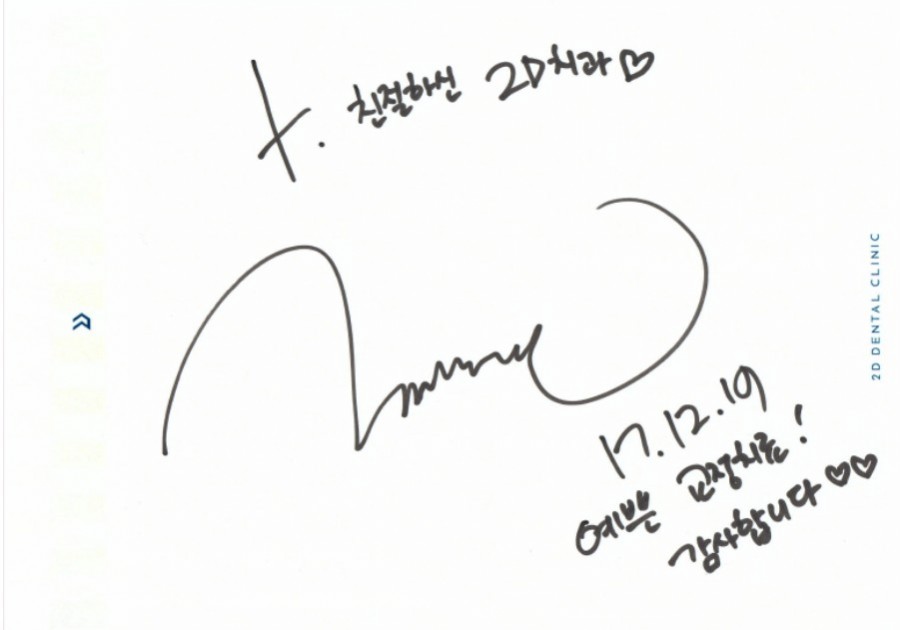 t. 친절하신 2D치과♡
17.12.19
예쁜 교정치료!
감사합니다♡♡
2D DENTAL CLINIC